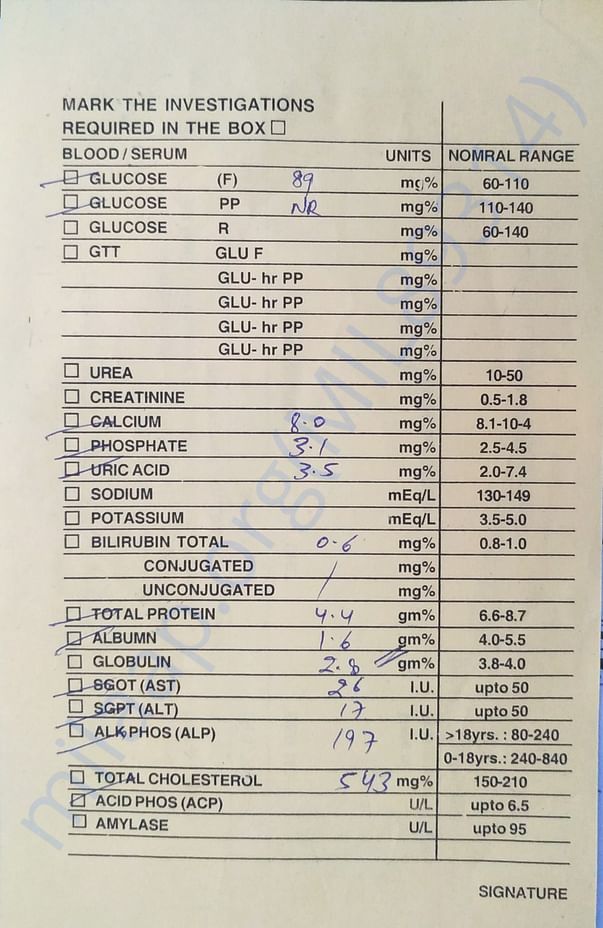 MARK THE INVESTIGATIONS
REQUIRED IN THE BOX
BLOOD / SERUM UNITS NOMRAL RANGE
GLUCOSE (F) 89 mg% 60-110
GLUCOSE PP NR mg% 110-140
GLUCOSE R mg% 60-140
GTT GLU F mg%
GLU- hr PP mg%
GLU- hr PP mg%
GLU- hr PP mg%
GLU- hr PP mg%
UREA mg% 10-50
CREATININE mg% 0.5-1.8
CALCIUM 8.0 mg% 8.1-10-4
PHOSPHATE 3.1 mg% 2.5-4.5
URIC ACID 3.5 mg% 2.0-7.4
SODIUM mEq/L 130-149
POTASSIUM mEq/L 3.5-5.0
BILIRUBIN TOTAL 0.6 mg% 0.8-1.0
CONJUGATED / mg%
UNCONJUGATED mg%
TOTAL PROTEIN 4.4 gm% 6.6-8.7
ALBUMN 1.6 gm% 4.0-5.5
GLOBULIN 2.8 gm% 3.8-4.0
SGOT (AST) 26 I.U. upto 50
SGPT (ALT) 17 I.U. upto 50
ALK PHOS (ALP) 197 I.U. >18yrs. : 80-240
0-18yrs.: 240-840
TOTAL CHOLESTEROL 543 mg% 150-210
ACID PHOS (ACP) U/L upto 6.5
AMYLASE U/L upto 95
SIGNATURE